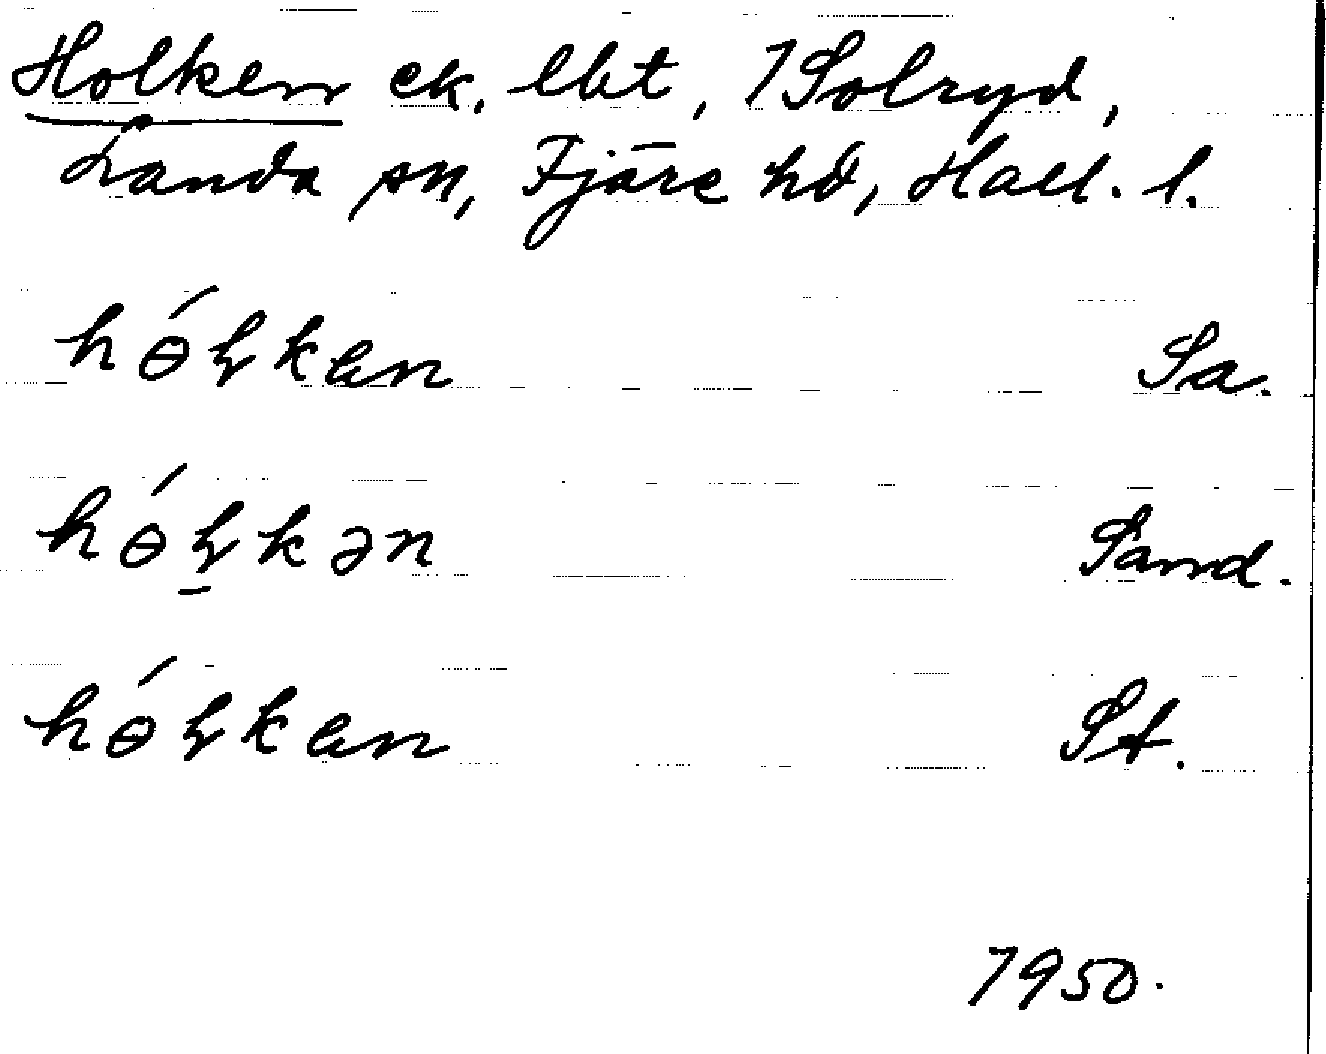 Holken ek. lht, 1 Solryd,
Landa sn, Fjäre hd, Hall. l.
hɵ́ꞎkan Sa.
hɵ́ꞎkən Sand.
hɵ́ꞎkan St.
1950.